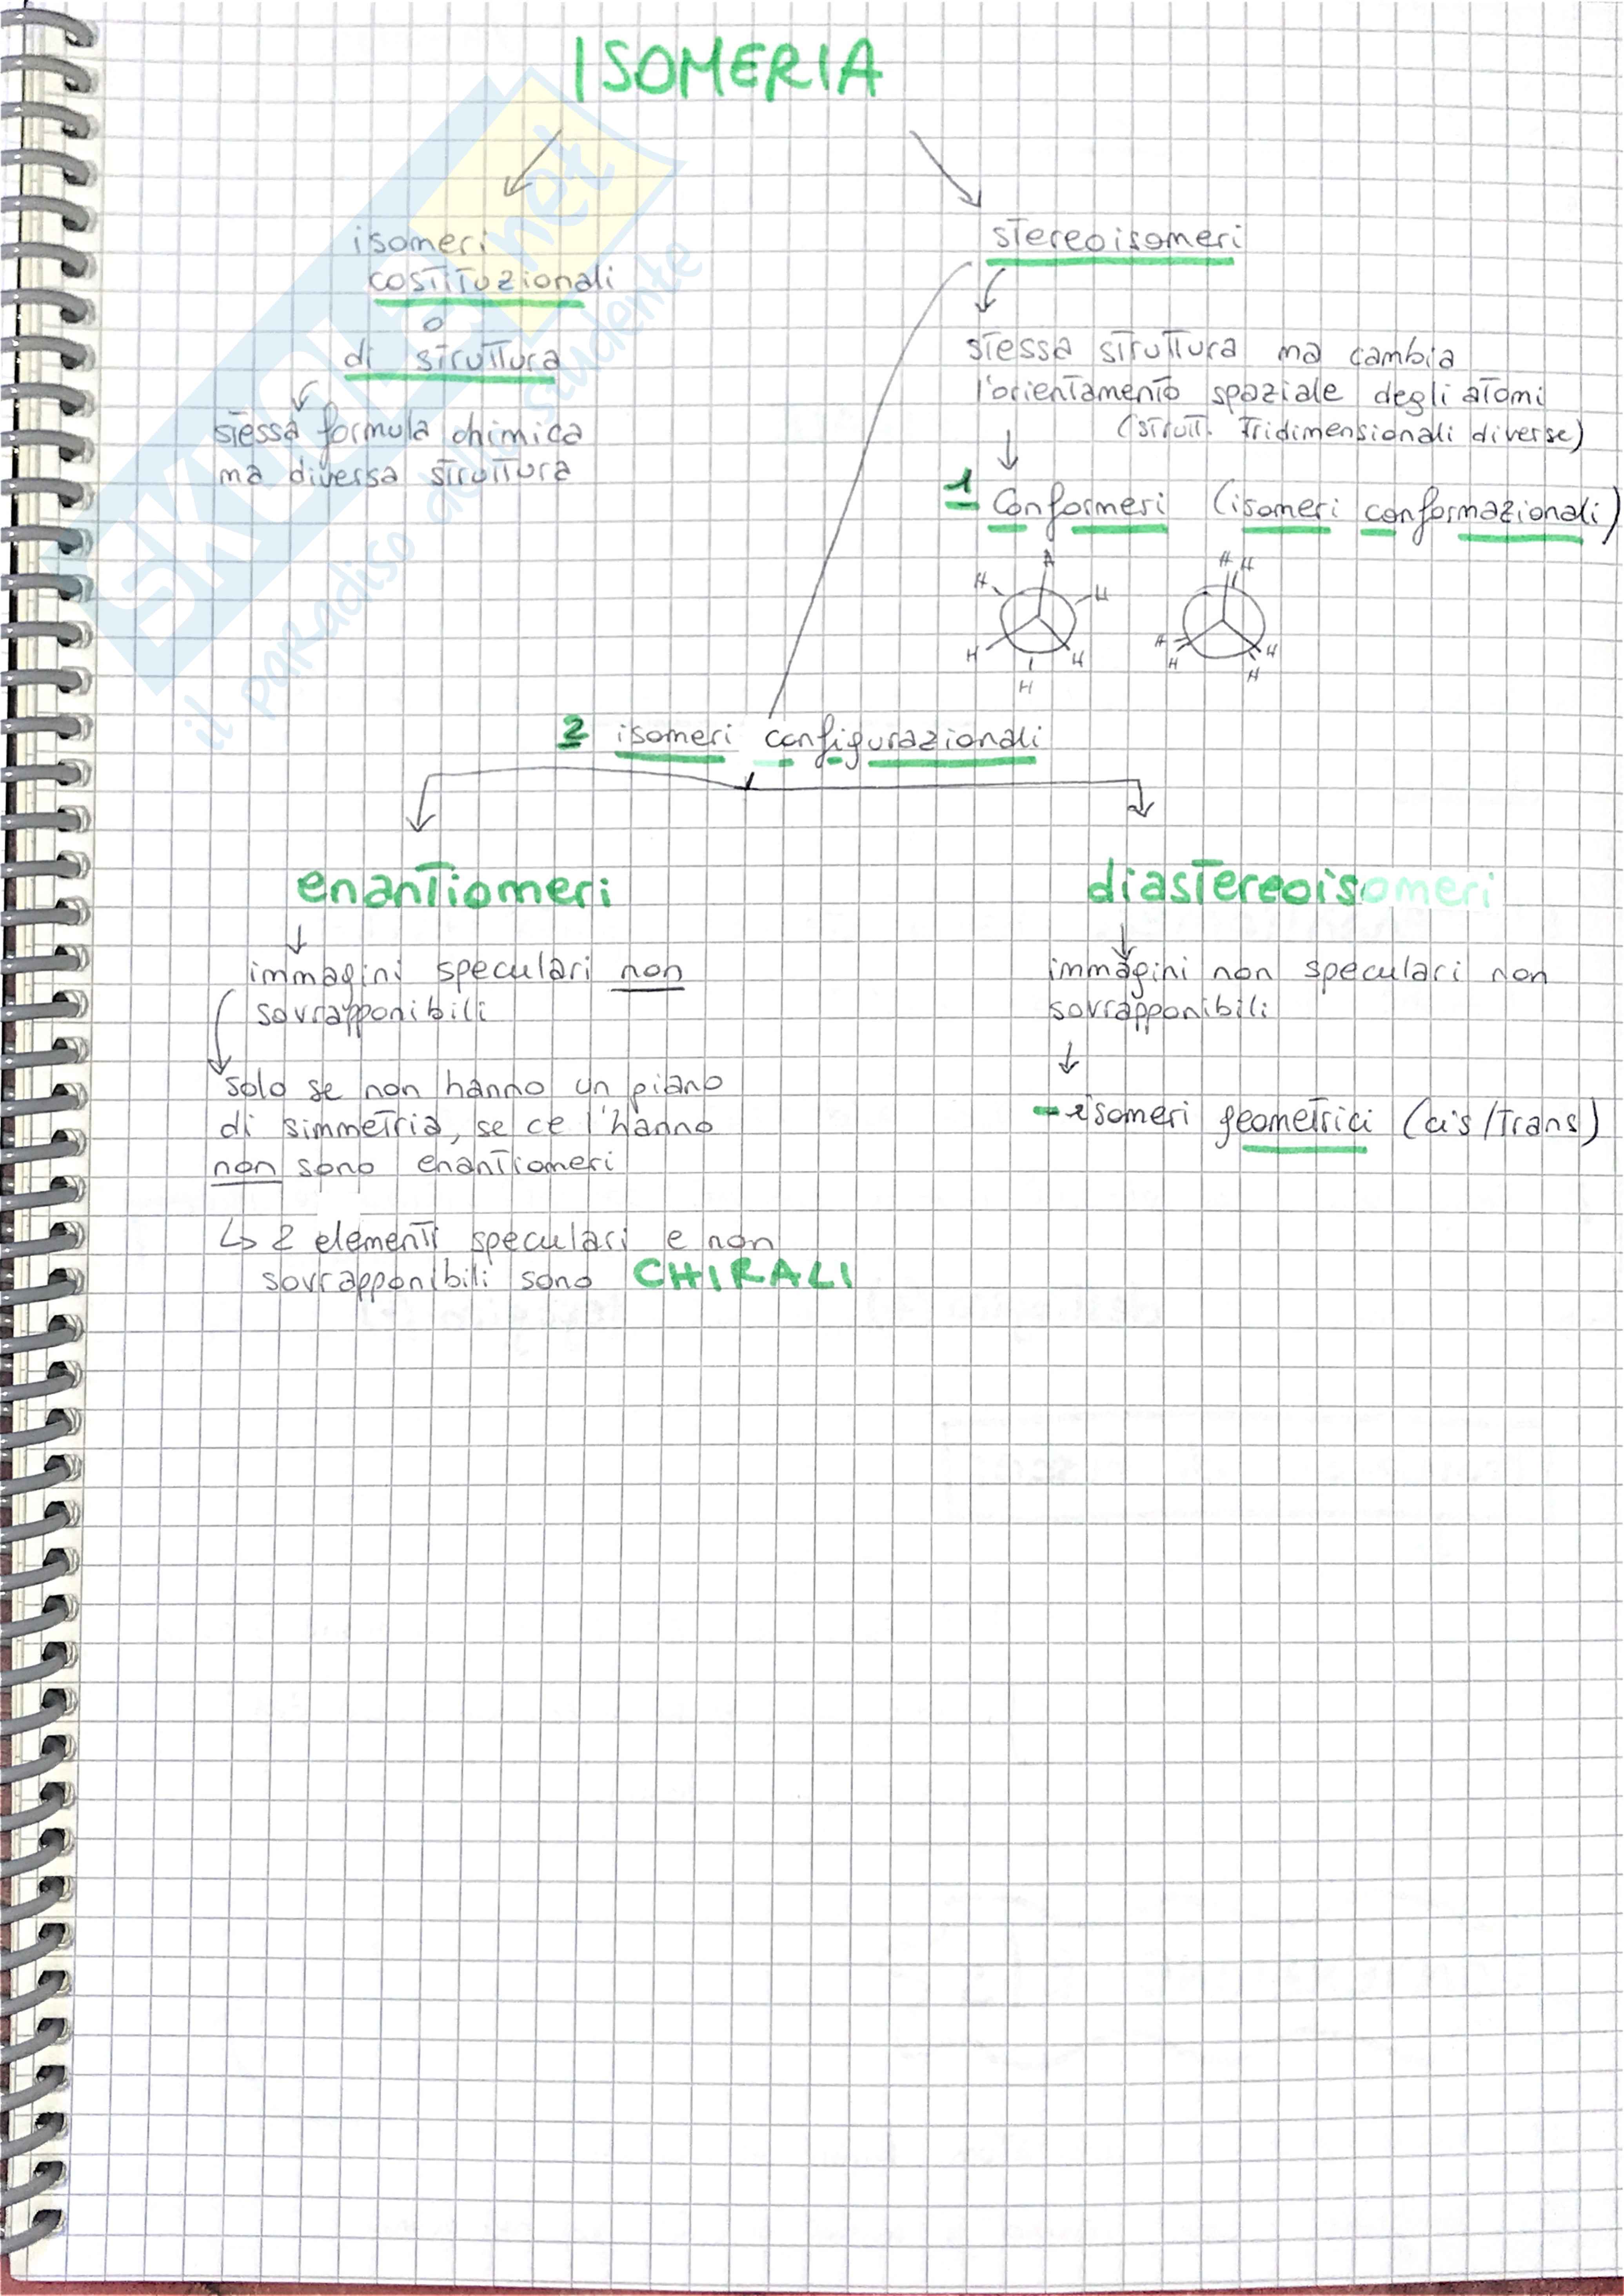 ISOMERIA
isomeri
costituzionali
o
di struttura
stessa formula chimica
ma diversa struttura
stereoisomeri
stessa struttura ma cambia
l'orientamento spaziale degli atomi
(strutt. tridimensionali diverse)
1 Conformeri (isomeri conformazionali)
H H H
H H
H H
H H
H H
H H
2 isomeri configurazionali
enantiomeri
immagini speculari non
sovrapponibili
solo se non hanno un piano
di simmetria, se ce l'hanno
non sono enantiomeri
↳ 2 elementi speculari e non
sovrapponibili sono CHIRALI
diastereoisomeri
immagini non speculari non
sovrapponibili
- isomeri geometrici (cis/trans)
SKUOLA.net
il paradiso dello studente